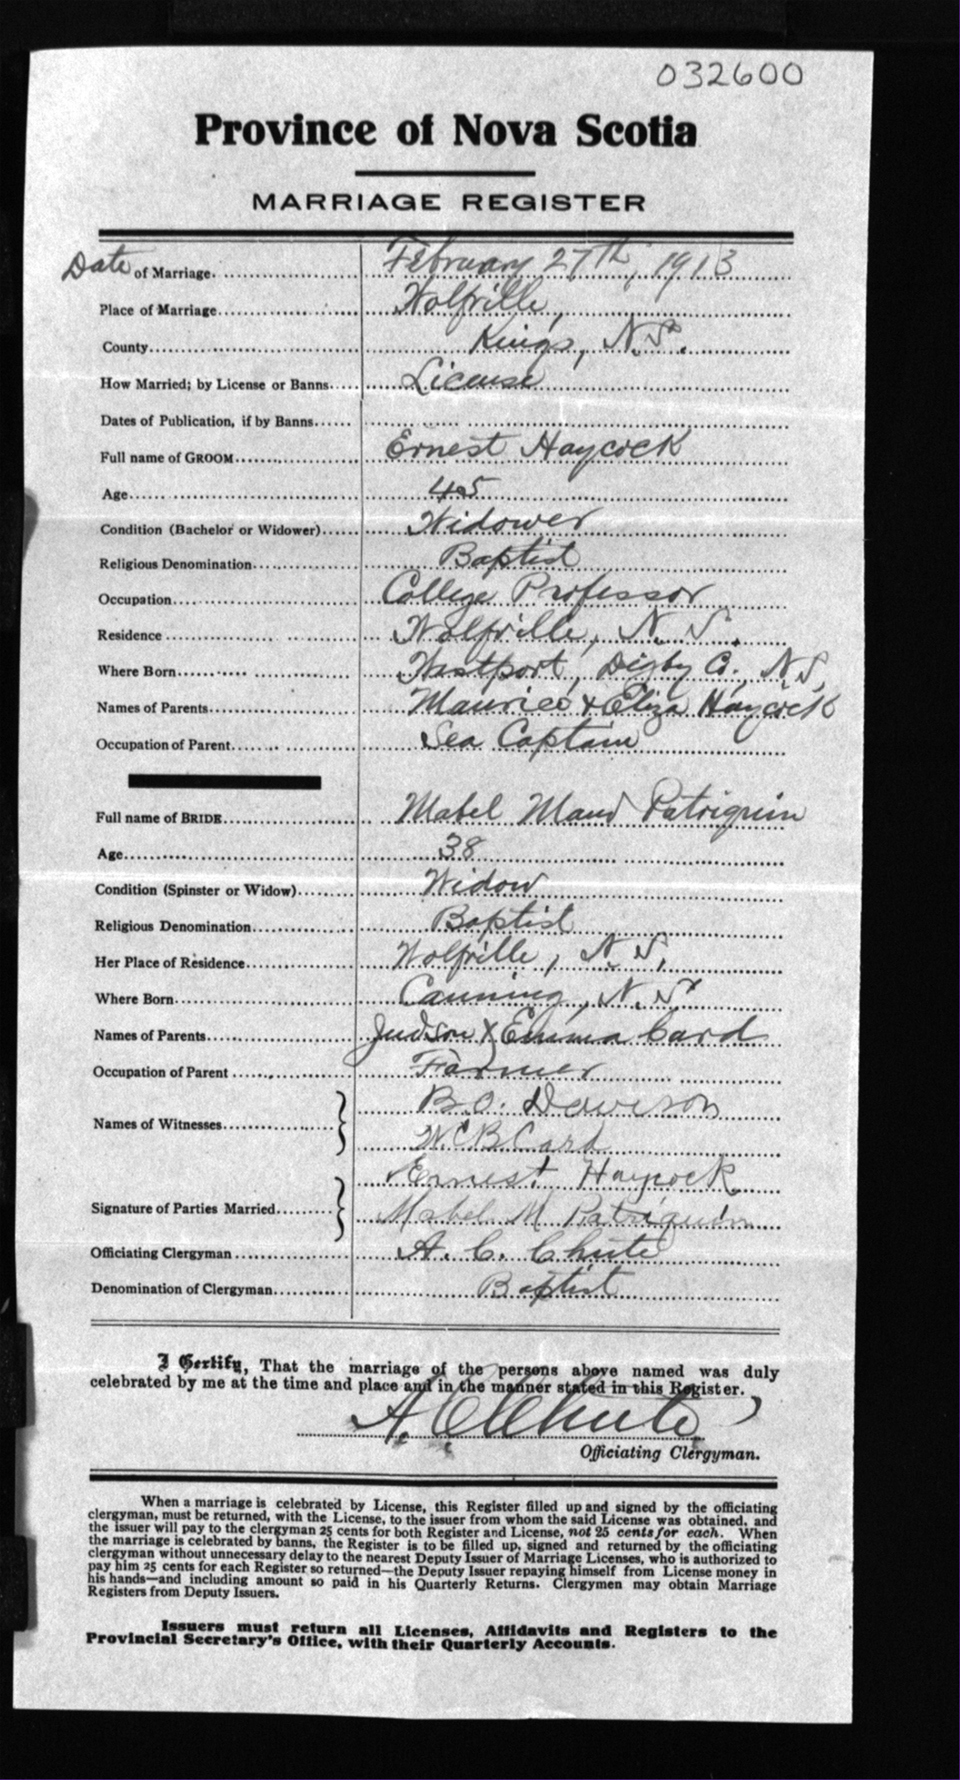 032600
Province of Nova Scotia
MARRIAGE REGISTER
Date of Marriage. February 27th, 1913
Place of Marriage Wolfville,
County Kings, N.S.
How Married; by License or Banns License
Dates of Publication, if by Banns
Full name of GROOM Ernest Haycock
Age 45
Condition (Bachelor or Widower) Widower
Religious Denomination Baptist
Occupation College Professor
Residence Wolfville, N.S.
Where Born Westport, Digby Co., N.S.
Names of Parents Maurice & Eliza Haycock
Occupation of Parent Sea Captain
Full name of BRIDE Mabel Maud Patriquin
Age 38
Condition (Spinster or Widow) Widow
Religious Denomination Baptist
Her Place of Residence Wolfville, N.S.
Where Born Canning, N.S.
Names of Parents Judson & Emma Card
Occupation of Parent Farmer
Names of Witnesses B.O. Davison
W C B Card
Ernest Haycock
Signature of Parties Married Mabel M Patriquin
Officiating Clergyman A. C. Chute
Denomination of Clergyman Baptist
I Certify, That the marriage of the persons above named was duly
celebrated by me at the time and place and in the manner stated in this Register.
A. C. Chute
Officiating Clergyman.
When a marriage is celebrated by License, this Register filled up and signed by the officiating
clergyman, must be returned, with the License, to the issuer from whom the said License was obtained, and
the issuer will pay to the clergyman 25 cents for both Register and License, not 25 cents for each. When
the marriage is celebrated by banns, the Register is to be filled up, signed and returned by the officiating
clergyman without unnecessary delay to the nearest Deputy Issuer of Marriage Licenses, who is authorized to
pay him 25 cents for each Register so returned—the Deputy Issuer repaying himself from License money in
his hands—and including amount so paid in his Quarterly Returns. Clergymen may obtain Marriage
Registers from Deputy Issuers.
Issuers must return all Licenses, Affidavits and Registers to the
Provincial Secretary's Office, with their Quarterly Accounts.